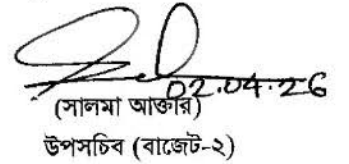 02.04.26
(সালমা আক্তার)
উপসচিব (বাজেট-২)